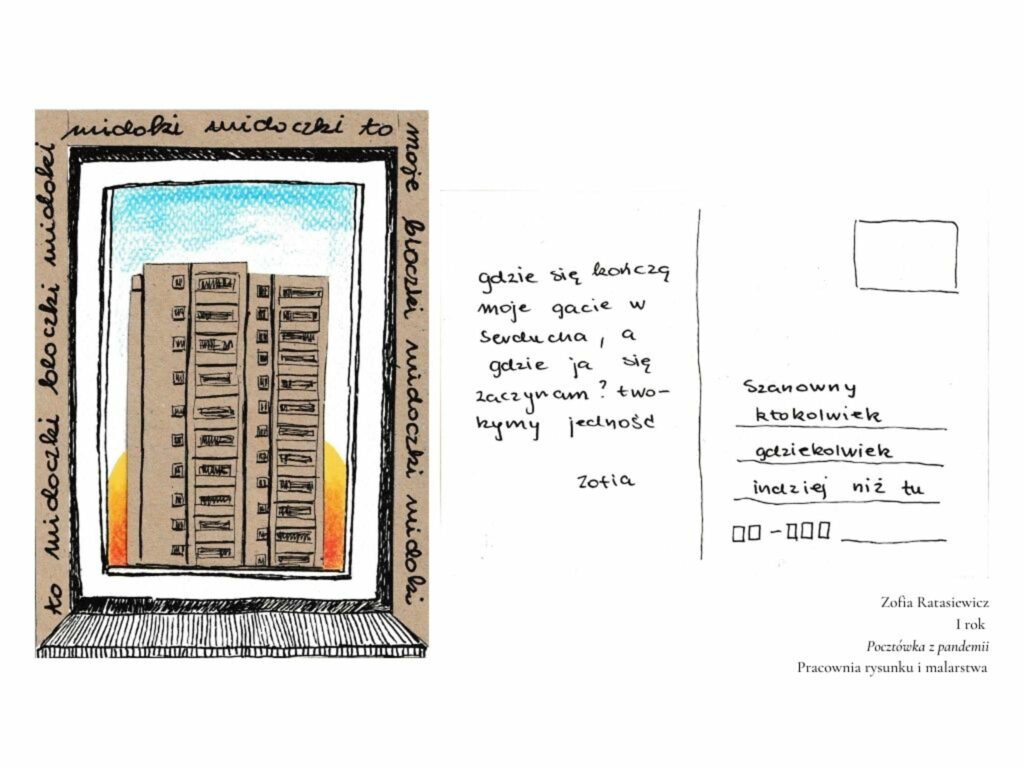 to widoczki bloczki widoki
widoki widoczki to
moje bloczki widoczki widoki
gdzie się kończą
moje gacie w
serducha, a
gdzie ja się
zaczynam? two-
rzymy jedność
Zofia
Szanowny
ktokolwiek
gdziekolwiek
indziej niż tu
Zofia Ratasiewicz
I rok
Pocztówka z pandemii
Pracownia rysunku i malarstwa